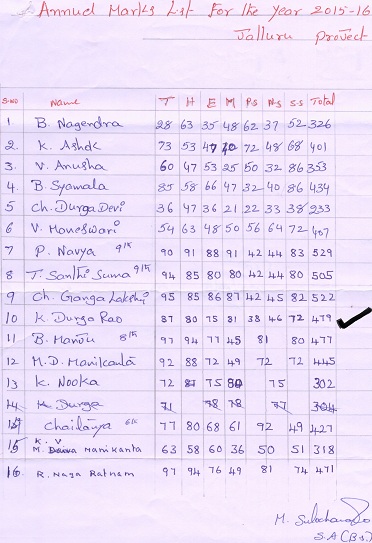 Annual Marks List For the Year 2015-16
Jalluru project
S.NO Name T H E M P.s N.s S.S Total
1 B. Nagendra 28 63 35 48 62 37 52 326
2. K. Ashok 73 53 47 70 72 48 68 401
3. V. Anusha 60 47 53 25 50 32 86 353
4. B Syamala 85 58 66 47 32 40 86 434
5 Ch. Durga Devi 36 47 36 21 22 33 38 233
6. V. Maneswari 54 63 48 50 56 64 72 407
7 P. Navya 90 91 88 91 42 44 83 529
8 T. Santhi Suma 94 85 80 80 42 44 80 505
9 Ch. Ganga Lakshmi 95 85 86 87 42 45 82 522
10 K. Durga Rao 87 80 75 81 38 46 72 479
11 B. Manou 97 94 77 45 81 80 477
12 M.D. Manikanta 92 88 72 49 72 72 445
13 K. Nooka 72 87 75 80 75 302
14 K. Durga 71 78 78 77 304
Chaitanya 77 80 68 61 92 49 427
15 K. V
M. Manikanta 63 58 60 36 50 51 318
16 R. Naga Ratnam 97 94 76 49 81 74 471
M.
S.A (B.S)